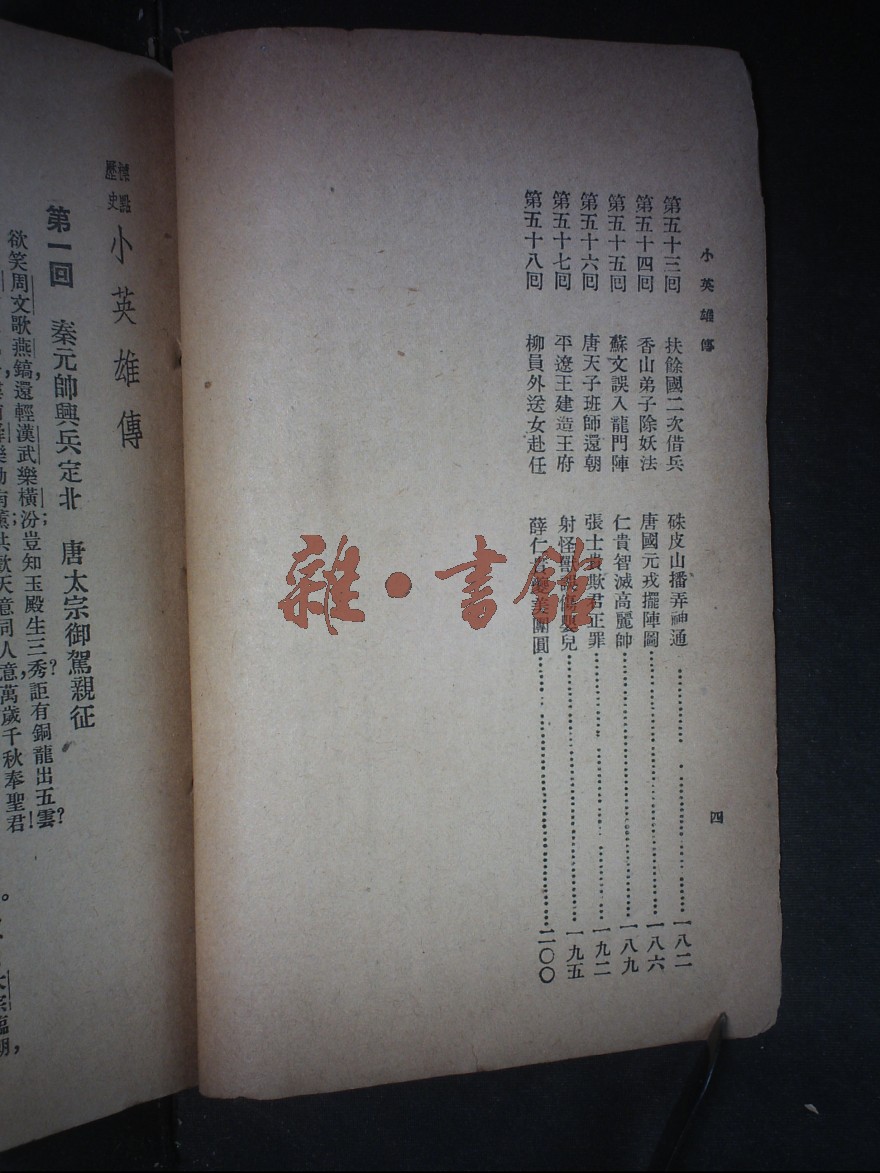 小英雄傳
四
第五十三囘　扶餘國二次借兵　硃皮山播弄神通……一八二
第五十四囘　香山弟子除妖法　唐國元戎擺陣圖……一八六
第五十五囘　蘇文誤入龍門陣　仁貴智滅高麗帥……一八九
第五十六囘　唐天子班師還朝　張士貴欺君正罪……一九二
第五十七囘　平遼王建造王府　射怪獸誤傷嬰兒……一九五
第五十八囘　柳員外送女赴任　薛仁貴雙美團圓……二〇〇
雜·書館
標點歷史
小英雄傳
第一回　秦元帥興兵定北　唐太宗御駕親征
欲笑周文歌燕鎬，還輕漢武樂橫汾；豈知玉殿生三秀？詎有銅龍出五雲？
薰共歡天意同人意，萬歲千秋奉聖君！